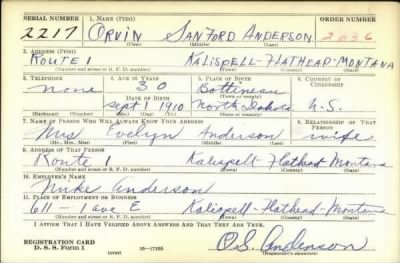 SERIAL NUMBER 1. NAME (Print) ORDER NUMBER
2217 ORVIN SANFORD ANDERSON 2036
(First) (Middle) (Last)
2. ADDRESS (Print)
ROUTE 1 KALISPELL-FLATHEAD-MONTANA
(Number and street or R. F. D. number) (Town) (County) (State)
3. TELEPHONE 4. AGE IN YEARS 5. PLACE OF BIRTH 6. COUNTRY OF CITIZENSHIP
none 30 Bottineau
DATE OF BIRTH (Town or county)
Sept 1 1910 North Dakota U.S.
(Exchange) (No.) (Mo.) (Day) (Yr.) (State or country)
7. NAME OF PERSON WHO WILL ALWAYS KNOW YOUR ADDRESS 8. RELATIONSHIP OF THAT PERSON
Mrs Evelyn Anderson wife
(Mr., Mrs., Miss) (First) (Middle) (Last)
9. ADDRESS OF THAT PERSON
Route 1 Kalispell-Flathead Montana
(Number and street or R. F. D. number) (Town) (County) (State)
10. EMPLOYER'S NAME
Mike Anderson
11. PLACE OF EMPLOYMENT OR BUSINESS
611-1 ave E Kalispell-Flathead-Montana
(Number and street or R. F. D. number) (Town) (County) (State)
I AFFIRM THAT I HAVE VERIFIED ABOVE ANSWERS AND THAT THEY ARE TRUE.
REGISTRATION CARD
D. S. S. Form 1 (over) 16-17105 O.S. Anderson
(Registrant's signature)